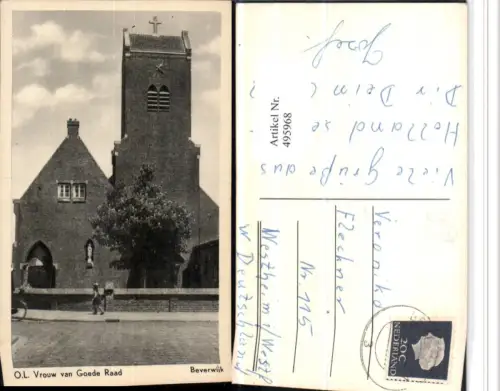 O.L. Vrouw van Goede Raad
Beverwijk
Artikel Nr.
495968
Viele Grüße aus
Holland se
Dir Dein
Josef.
Veronika
Flechner
Nr. 115
Westheim / Westf
w Deutschland
NEDERLAND
20C